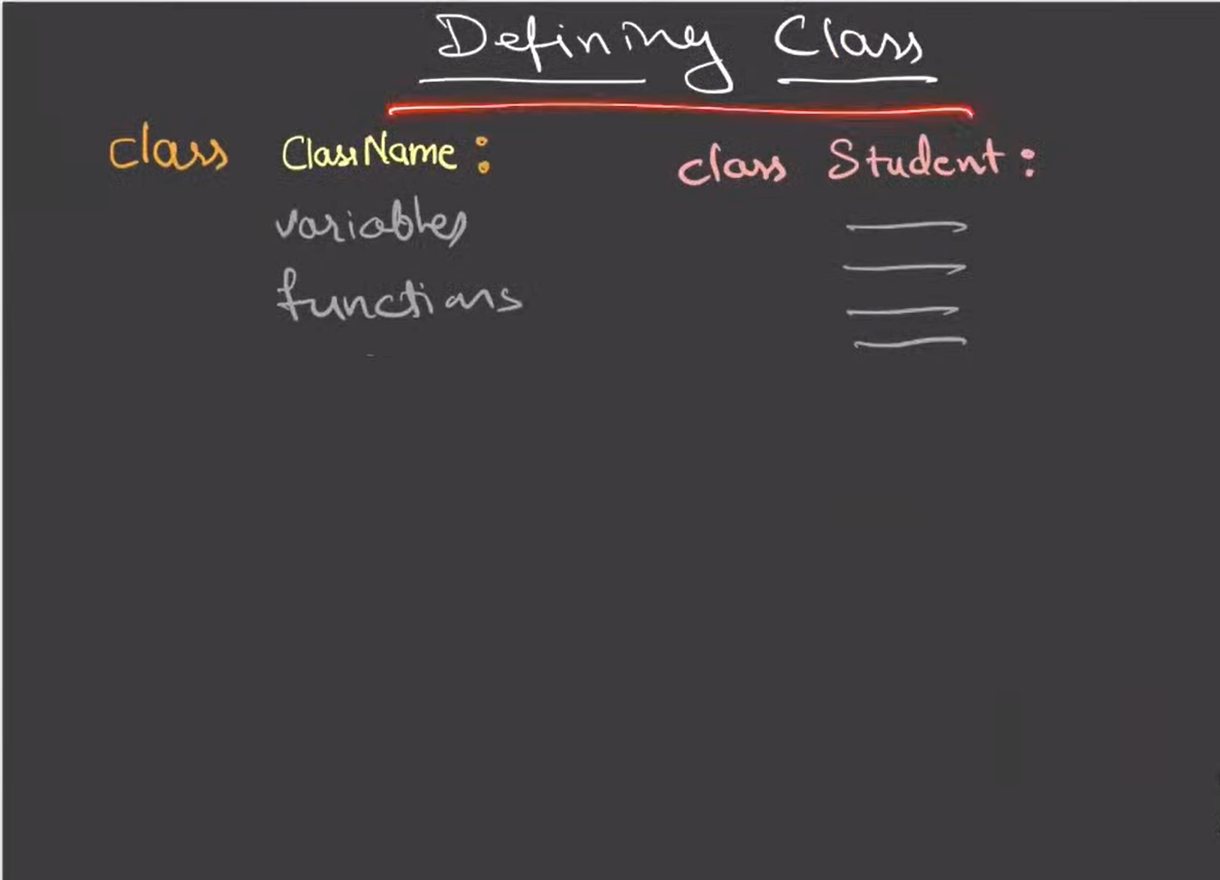 Defining Class
class ClassName:
variables
functions
class Student: